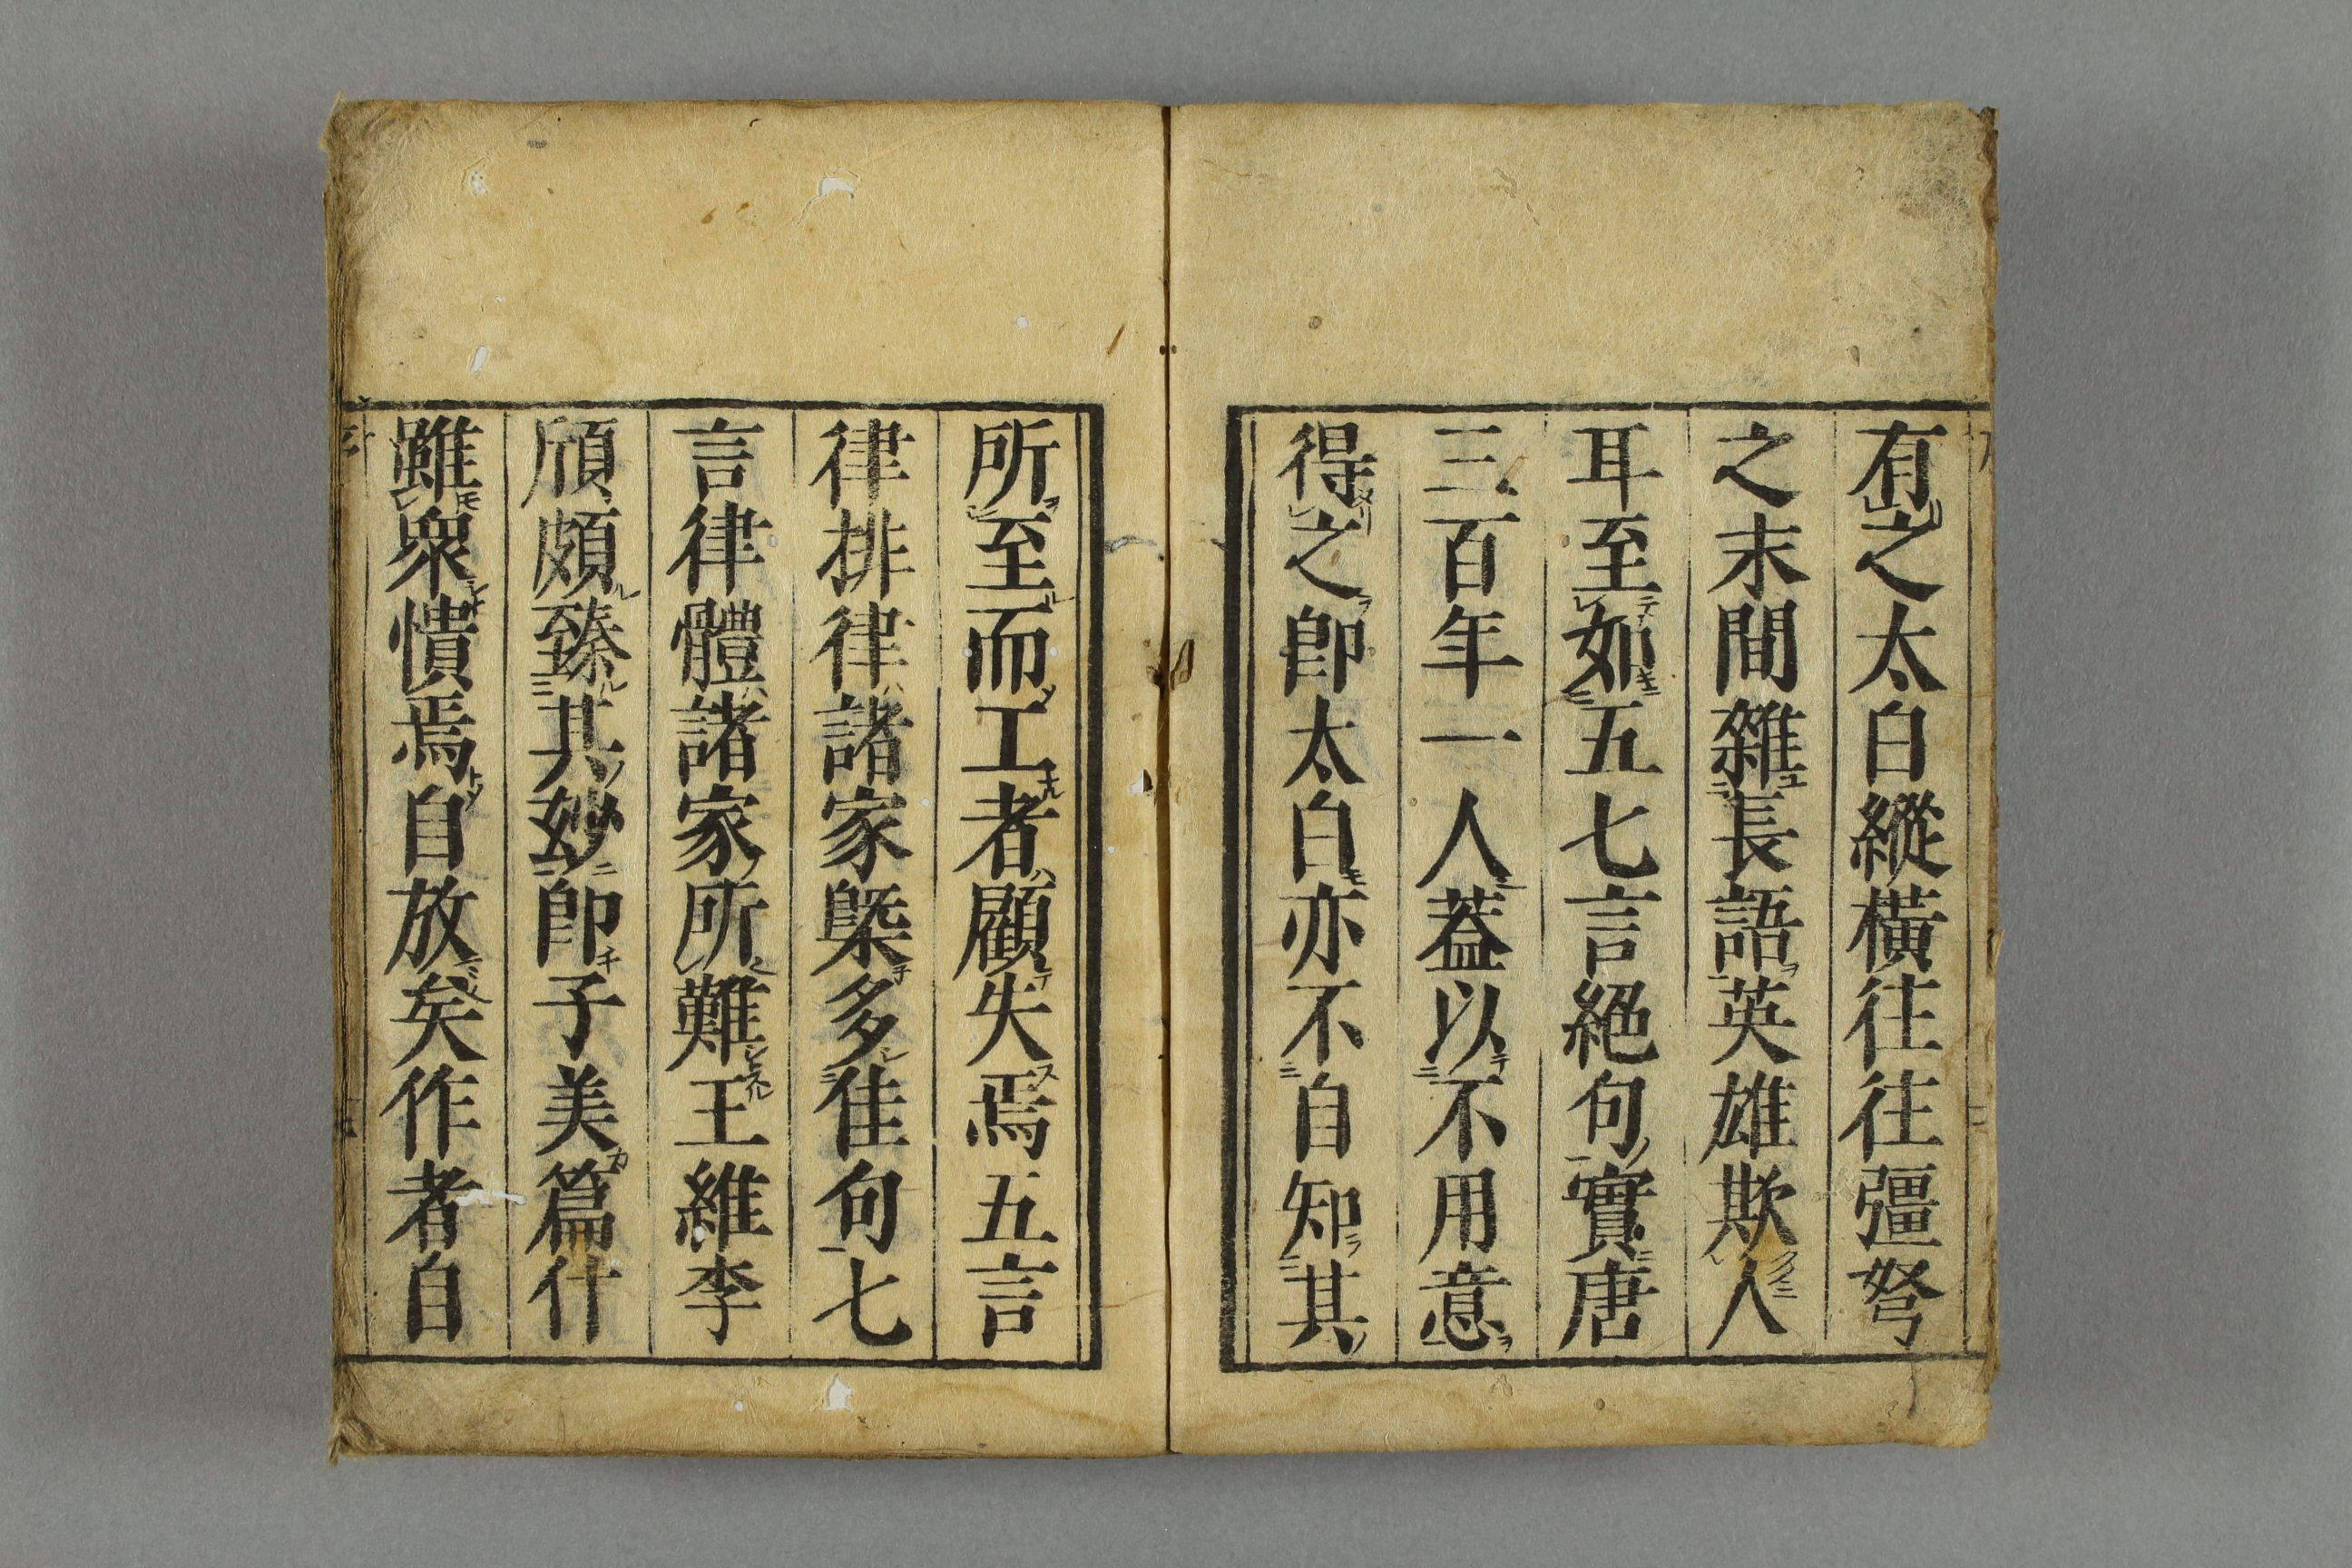 有之太白縱橫往往彊弩
之末間雜長語英雄欺人
耳至如五七言絕句實唐
三百年一人葢以不用意
得之卽太白亦不自知其
所至而工者顧失焉五言
律排律諸家槩多佳句七
言律體諸家所難王維李
頎頗臻其妙卽子美篇什
雖衆憒焉自放矣作者自